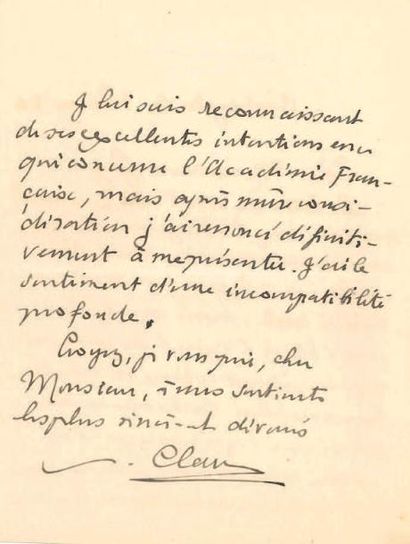 Je lui suis reconnaissant
de ses excellentes intentions en ce
qui concerne l'Académie Fran-
çaise, mais après mûre consi-
dération j'ai renoncé définiti-
vement à me présenter. J'ai le
sentiment d'une incompatibilité
profonde.
Croyez, je vous prie, cher
Monsieur, à mes sentiments
les plus sincère et dévoués